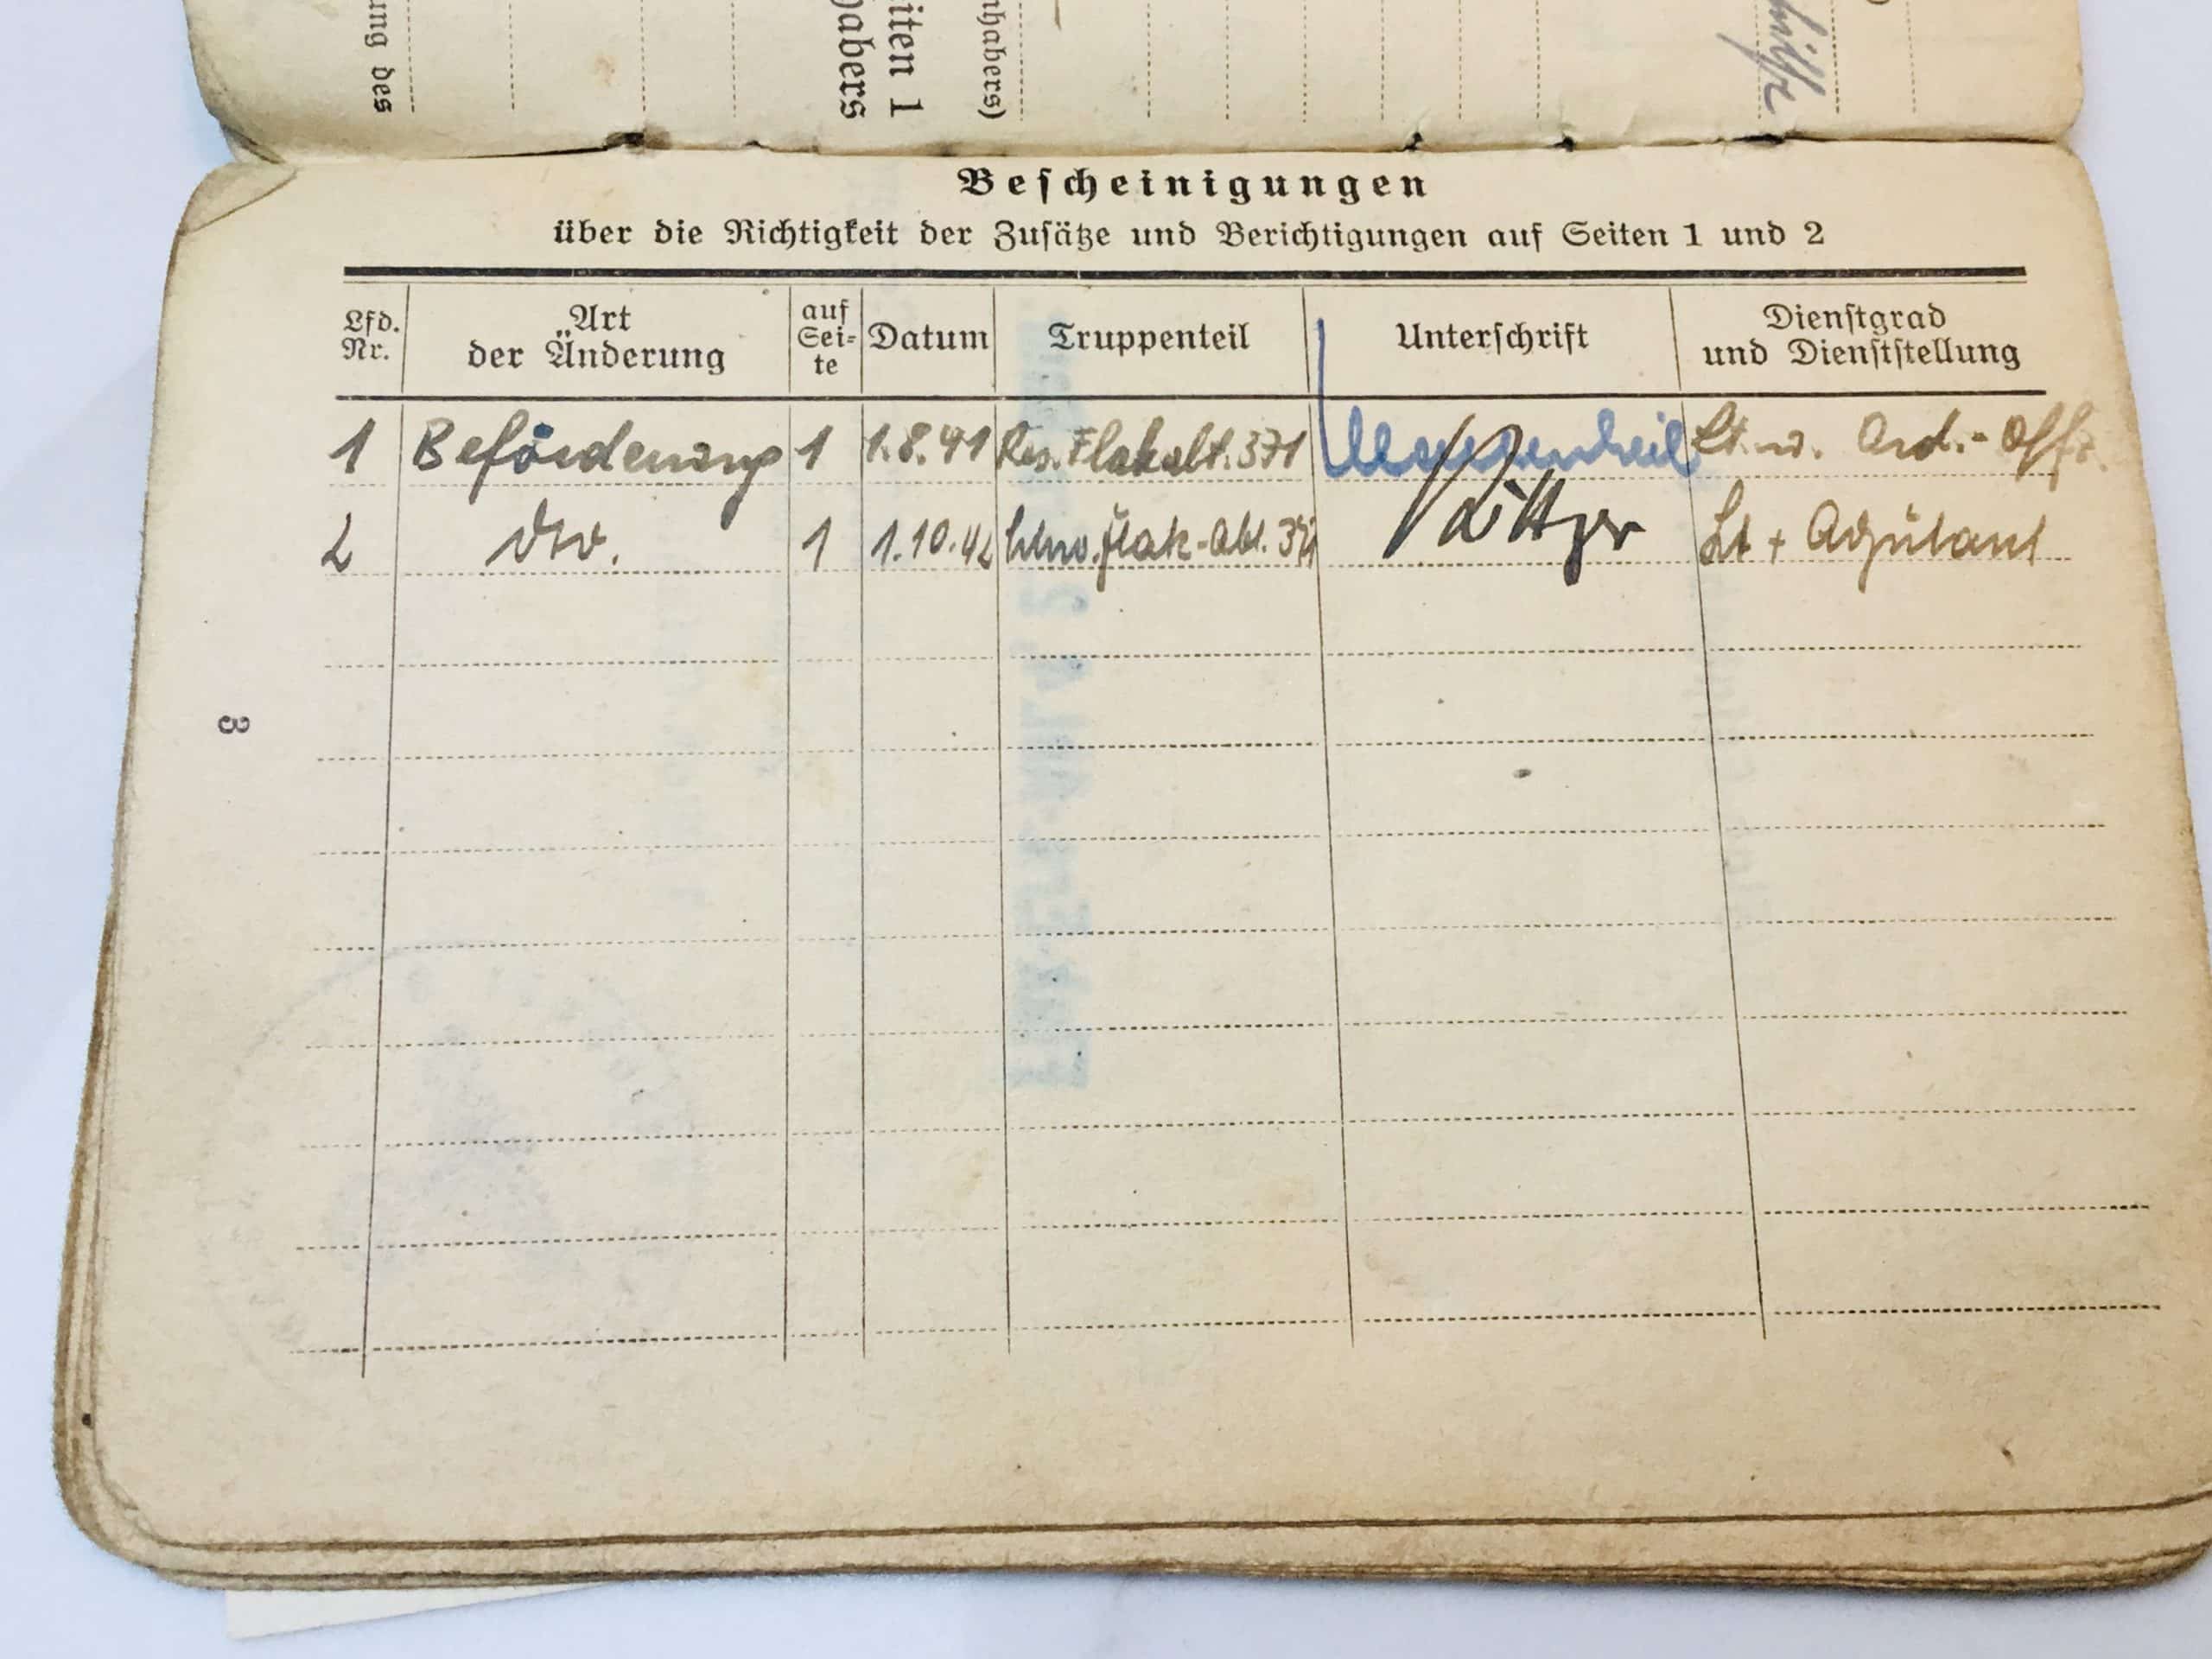 ung des
iten 1
habers
nhabers)
Bescheinigungen
über die Richtigkeit der Zusätze und Berichtigungen auf Seiten 1 und 2
Lfd. Nr.
Art der Änderung
auf Sei-te
Datum
Truppenteil
Unterschrift
Dienstgrad und Dienststellung
1 Beförderung 1 1.8.41 Res. Flakabt. 371 Lt. u. Ord.-Offz.
2 dto. 1 1.10.42 Flak-Abt. 371 Lt + Adjutant
3